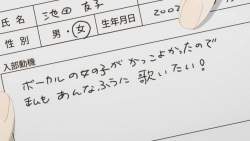 氏名 池田 友子
性別 男・女 生年月日 2002
入部動機
ボーカルの女の子がかっこよかったので
私もあんなふうに歌いたい!